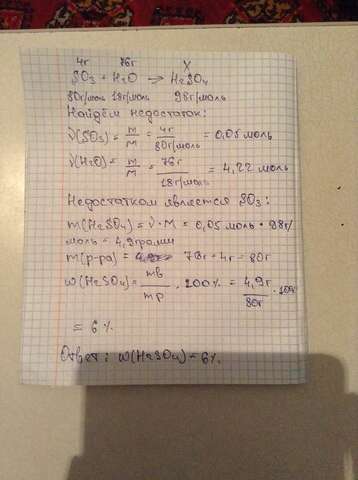 4г 76г X
SO3 + H2O → H2SO4
80г/моль 18г/моль 98г/моль
Найдём недостаток:
ν(SO3) = m/M = 4г/80г/моль = 0,05 моль
ν(H2O) = m/M = 76г/18г/моль = 4,22 моль
Недостатком является SO3:
m(H2SO4) = ν · M = 0,05 моль · 98г/
моль = 4,9грамм
m(р-ра) = 76г + 4г = 80г
ω(H2SO4) = mв/mр · 100% = 4,9г/80г · 100%
= 6%
Ответ: ω(H2SO4) = 6%.